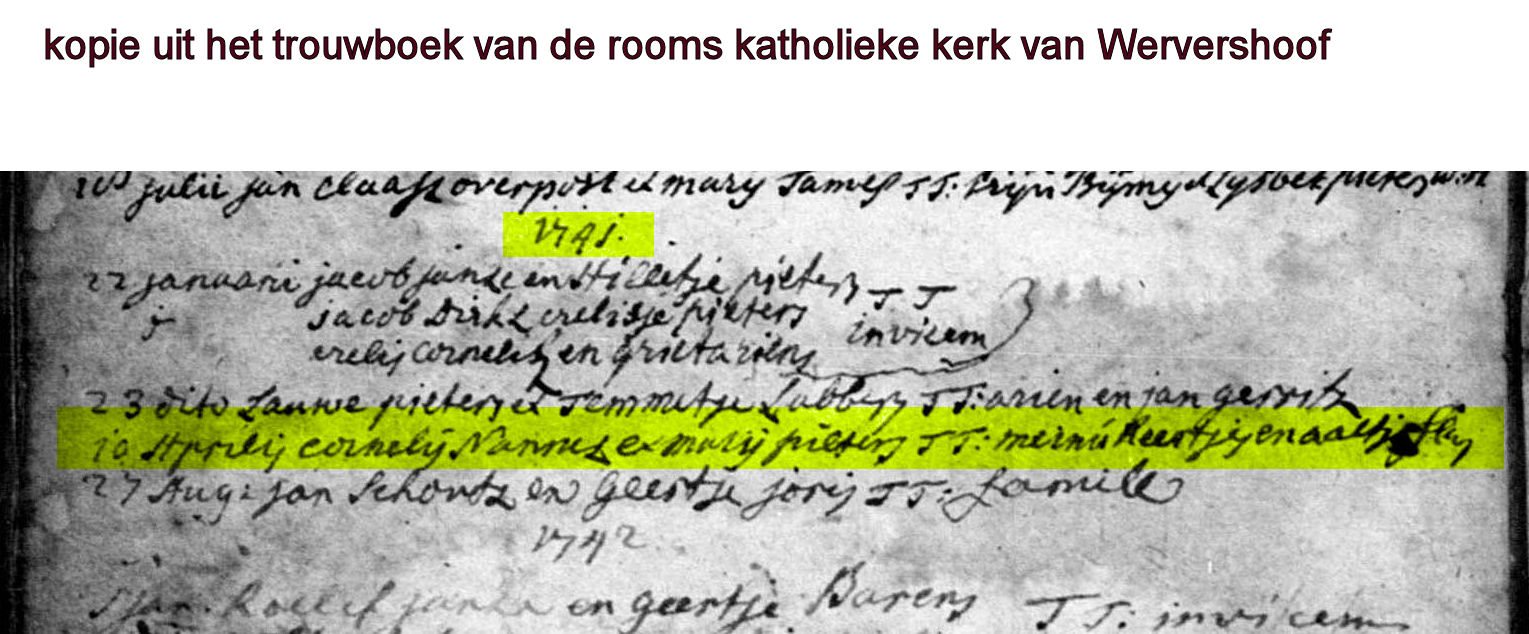 kopie uit het trouwboek van de rooms katholieke kerk van Wervershoof
julii jan claasz overpost et marij Jamess TT: trijn
1741.
22 januarii jacob janse en Hilletje pieters TT
jacob Dirksz pieters
cornelisz en griet ariens invicem
23 dito Lauwe pieters et Jemmetje Lubbers TT: arien en jan gerritz
10 Aprilij cornelij Nannes ex marij pieters TT: en aaltje
27 Aug: jan Schoutz en Geertje jorij TT: familie
1742
jan. Roelef jansz en geertje Barens TT: invicem